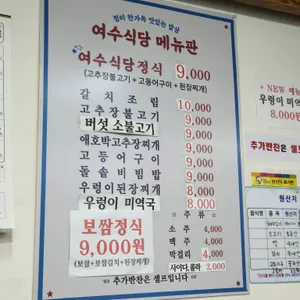 정이 한가득 맛있는 밥상
여수식당 메뉴판
여수식당정식 9,000
(고추장불고기 + 고등어구이 + 된장찌개)
갈치조림 10,000
고추장불고기 9,000
버섯 소불고기 9,000
애호박고추장찌개 9,000
고등어구이 9,000
돌솥비빔밥 9,000
우렁이된장찌개 8,000
우렁이 미역국 8,000
보쌈정식
9,000원
(보쌈+보쌈김치+된장찌개)
주류
소주 4,000
맥주 4,000
막걸리 4,000
사이다,콜라 2,000
추가반찬은 셀프입니다
*NEW 메뉴
우렁이 미
추가반찬은 셀프
원산지 표시판
원산지
음식명